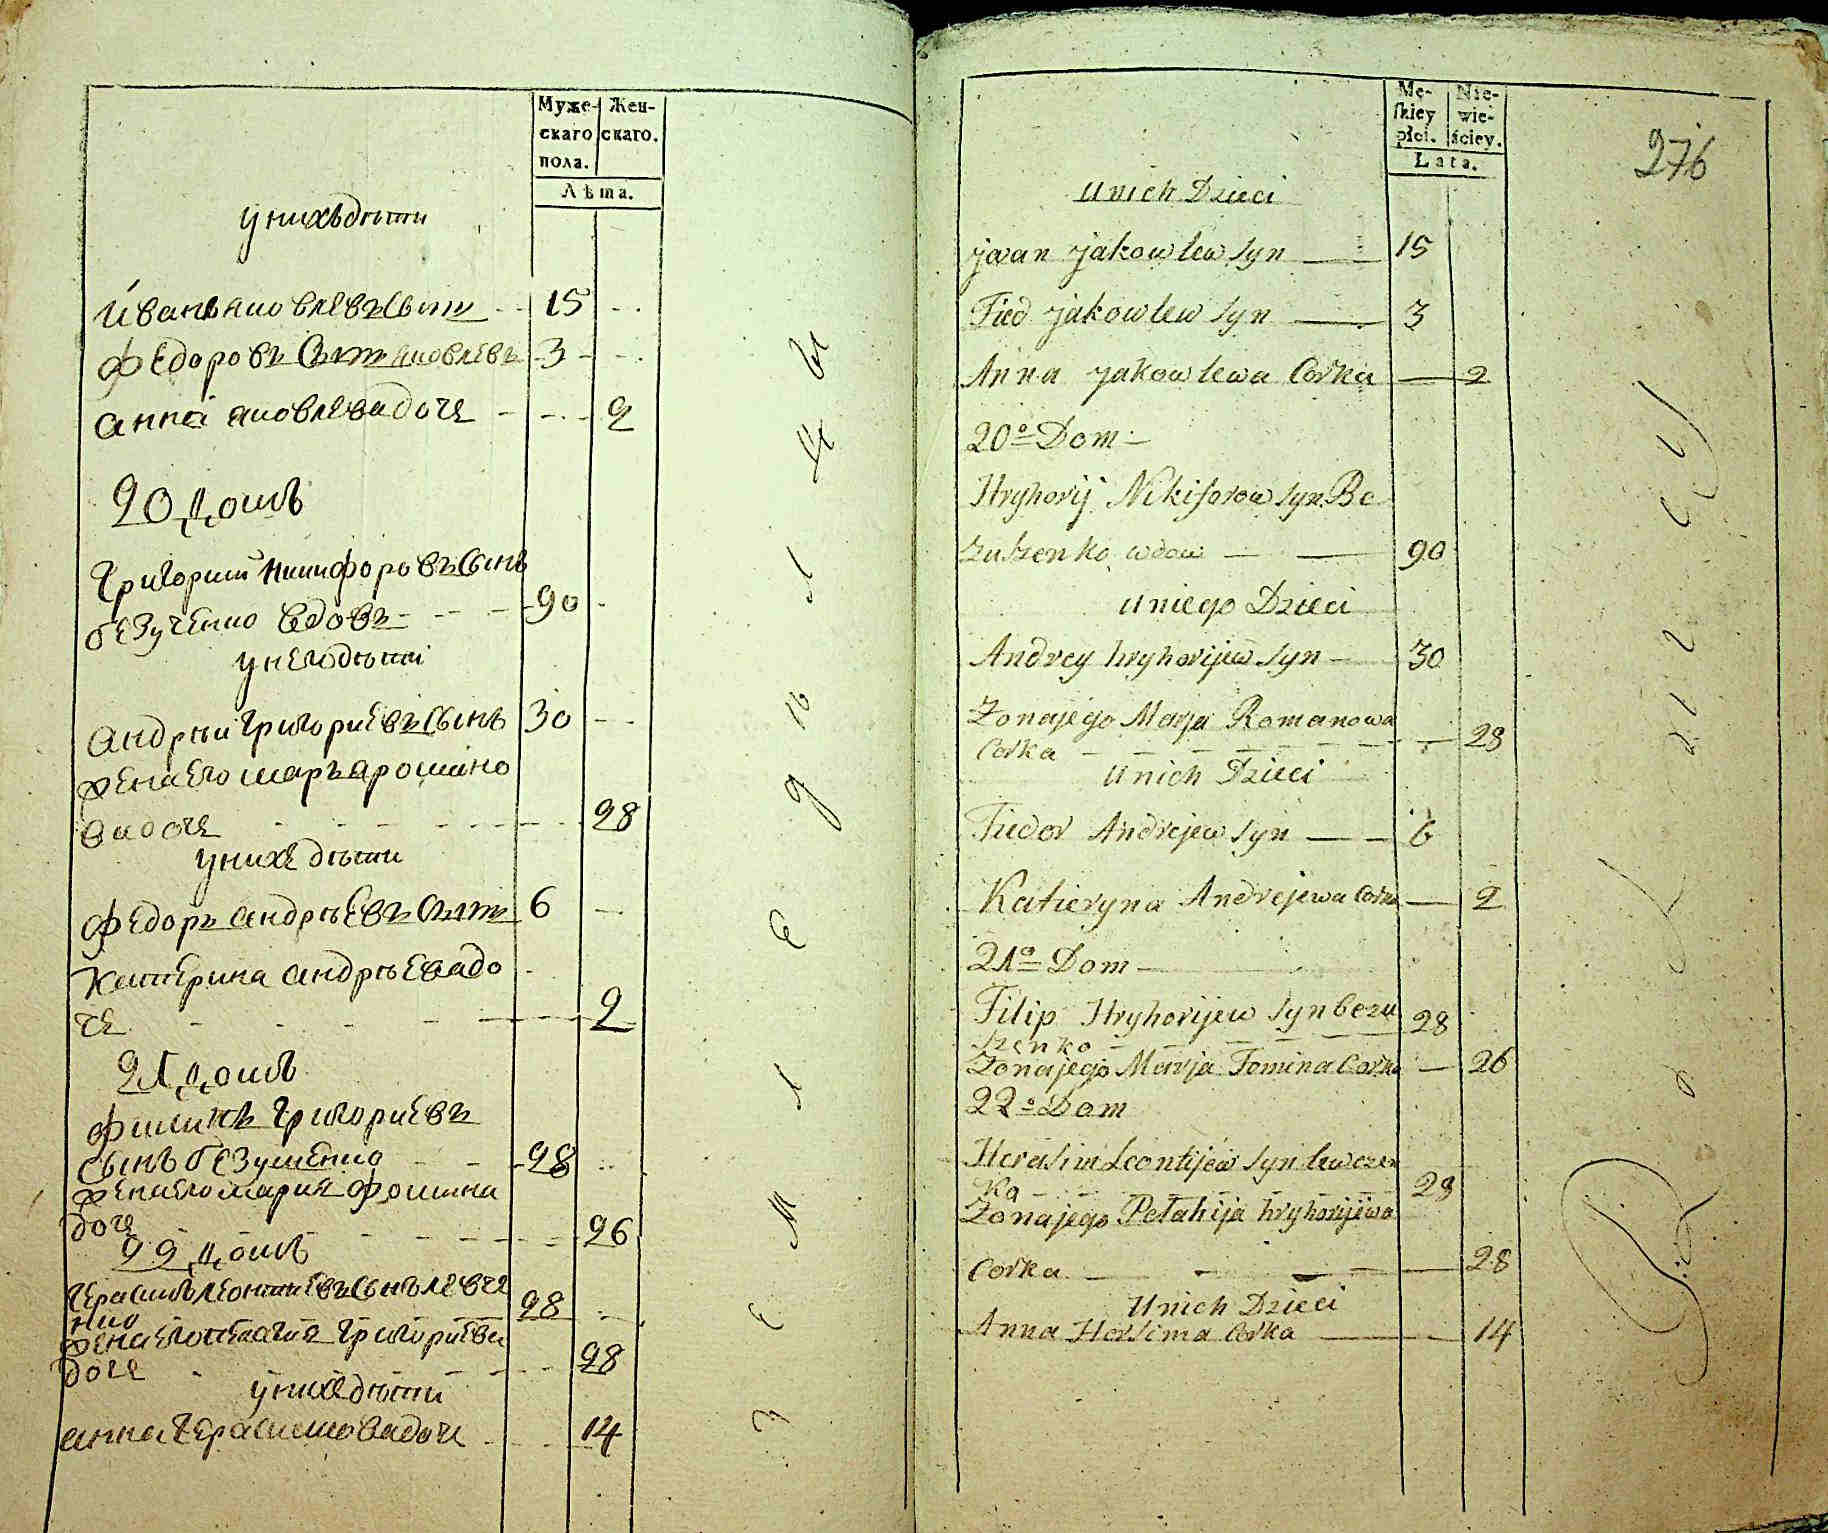 Муже-
скаго
пола.
Жен-
скаго.
Лѣта.
у нихъ дѣти
Иванъ Яковлевъ сынъ 15
Федоровъ сынъ Яковлевъ 3
Анна Яковлева доче 2
20 домъ
Григорий Никифоровъ сынъ
безученко вдовъ 90
у него дѣти
Андрѣй Григориевъ сынъ 30
жена его Маръя Романо
ва доче 28
у нихъ дѣти
Федоръ Андрѣевъ сынъ 6
Катерина Андрѣева до
че 2
21 домъ
Филипъ Григориевъ
сынъ безушенко 28
жена его Мария Фомина
доче 26
22 домъ
Герасимъ Леонтиевъ сынъ левче
нко 28
жена его Пелагия Григориева
доче 28
у нихъ дѣти
Анна Герасимова доче 14
Mę-
skiey
płci.
Nie-
wie-
ściey.
Lata.
276
U nich Dzieci
jwan jakowlew syn 15
Fied jakowlew syn 3
Anna jakowlewa Corka 2
20o Dom
Hryhorij Nikiforow syn Be
zuszenko wdow 90
U niego Dzieci
Andrey hryhorijew syn 30
Zona jego Marja Romanowa
Corka 28
U nich Dzieci
Fiedor Andrejew syn 6
Katieryna Andrejewa Corka 2
21o Dom
Filip Hryhorijew syn bezu
szenko 28
Zona jego Marja Fomina Corka 26
22o Dom
Herasim Leontijew syn lewczen
Ko 28
Zona jego Pelahija hryhorijewa
Corka 28
U nich Dzieci
Anna Hersima Corka 14